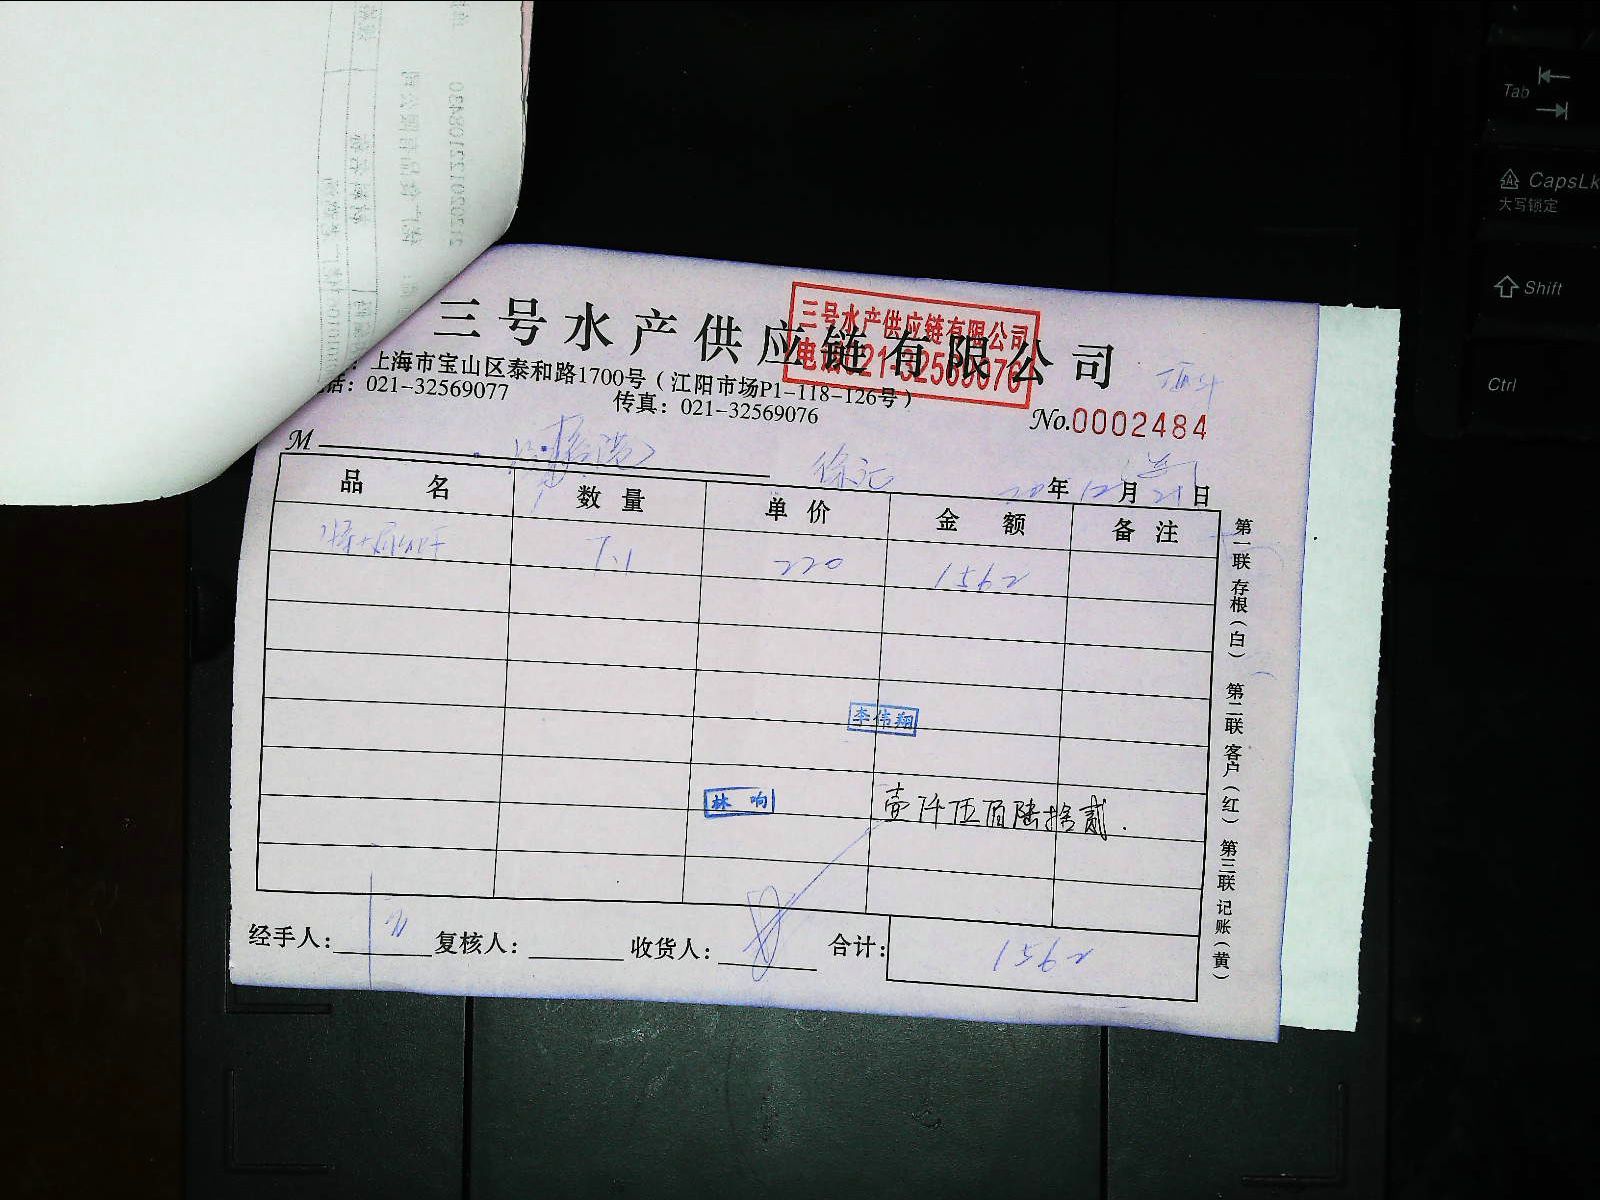 三号水产供应链有限公司
三号水产供应链有限公司
上海市宝山区泰和路1700号（江阳市场P1-118-126号）
话：021-32569077 传真：021-32569076
No.0002484
M 徐汇 20年12月21日
品名 数量 单价 金额 备注
7.1 220 1562
李伟翔
林 响
壹仟伍佰陆拾贰.
经手人： 复核人： 收货人： 合计： 1562
第一联 存根（白） 第二联 客户（红） 第三联 记账（黄）
Tab
CapsLk
大写锁定
Shift
Ctrl